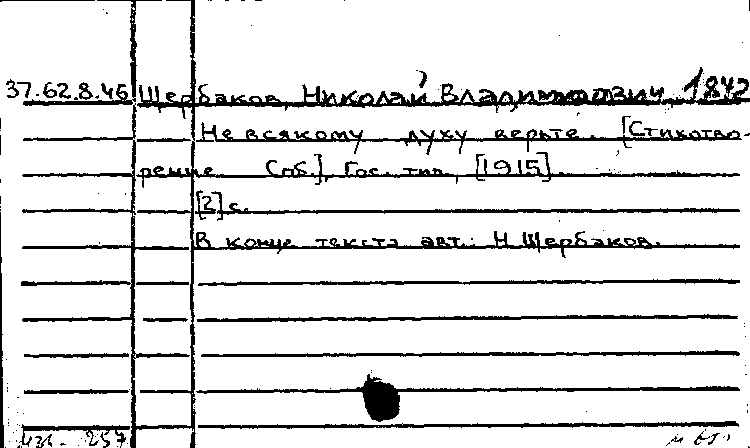 37.62.8.46 Щербаков, Николай Владимирович, 1842
Не всякому духу верьте. [Стихотво-
рение Спб.], Гос. тип., [1915].
[2] с.
В конце текста авт.: Н. Щербаков.
257